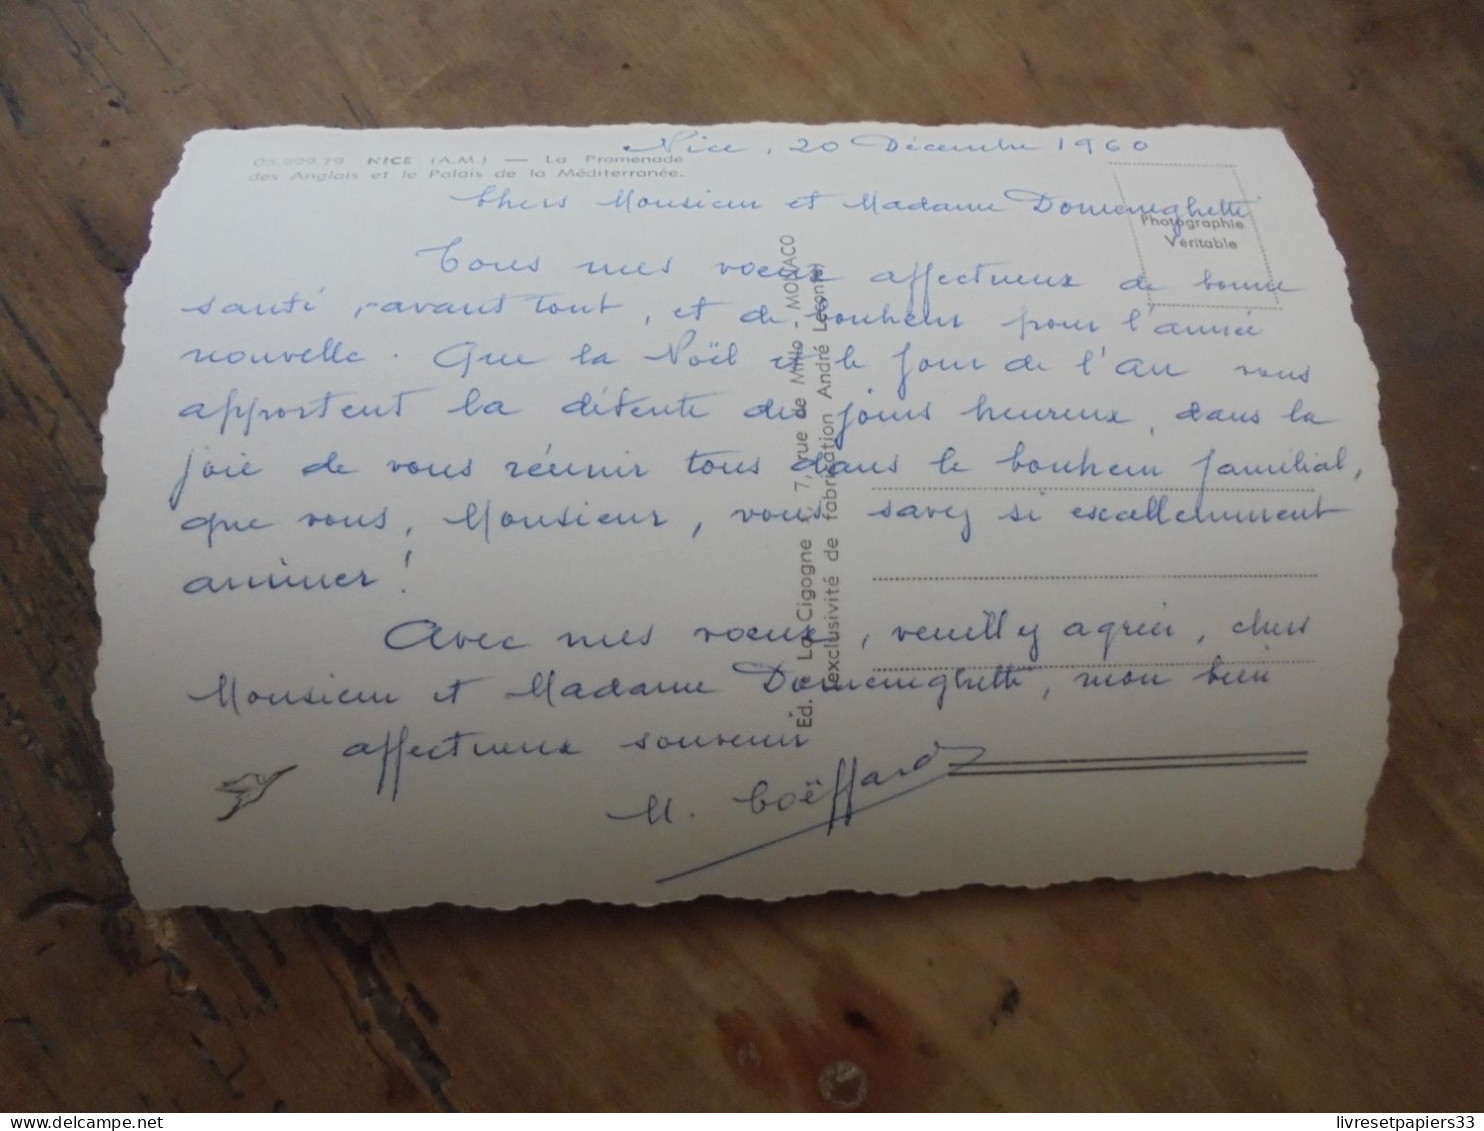 Nice, 20 Décembre 1960
06.999.79 NICE (A.M.) — La Promenade
des Anglais et le Palais de la Méditerranée.
Chers Monsieur et Madame Domeneghetti
Photographie
Véritable
Tous mes vœux affectueux de bonne
santé, avant tout, et de bonheur pour l'année
nouvelle. Que la Noël et le Jour de l'An vous
apportent la détente des jours heureux, dans la
joie de vous réunir tous dans le bonheur familial,
que vous, Monsieur, vous savez si excellemment
animer !
Avec mes vœux, veuillez agréer, chers
Monsieur et Madame Domeneghetti, mon bien
affectueux souvenir
M. Coëffard
Ed. La Cigogne 7, rue de Millo - MONACO
exclusivité de fabrication André Leconte
livresetpapiers33